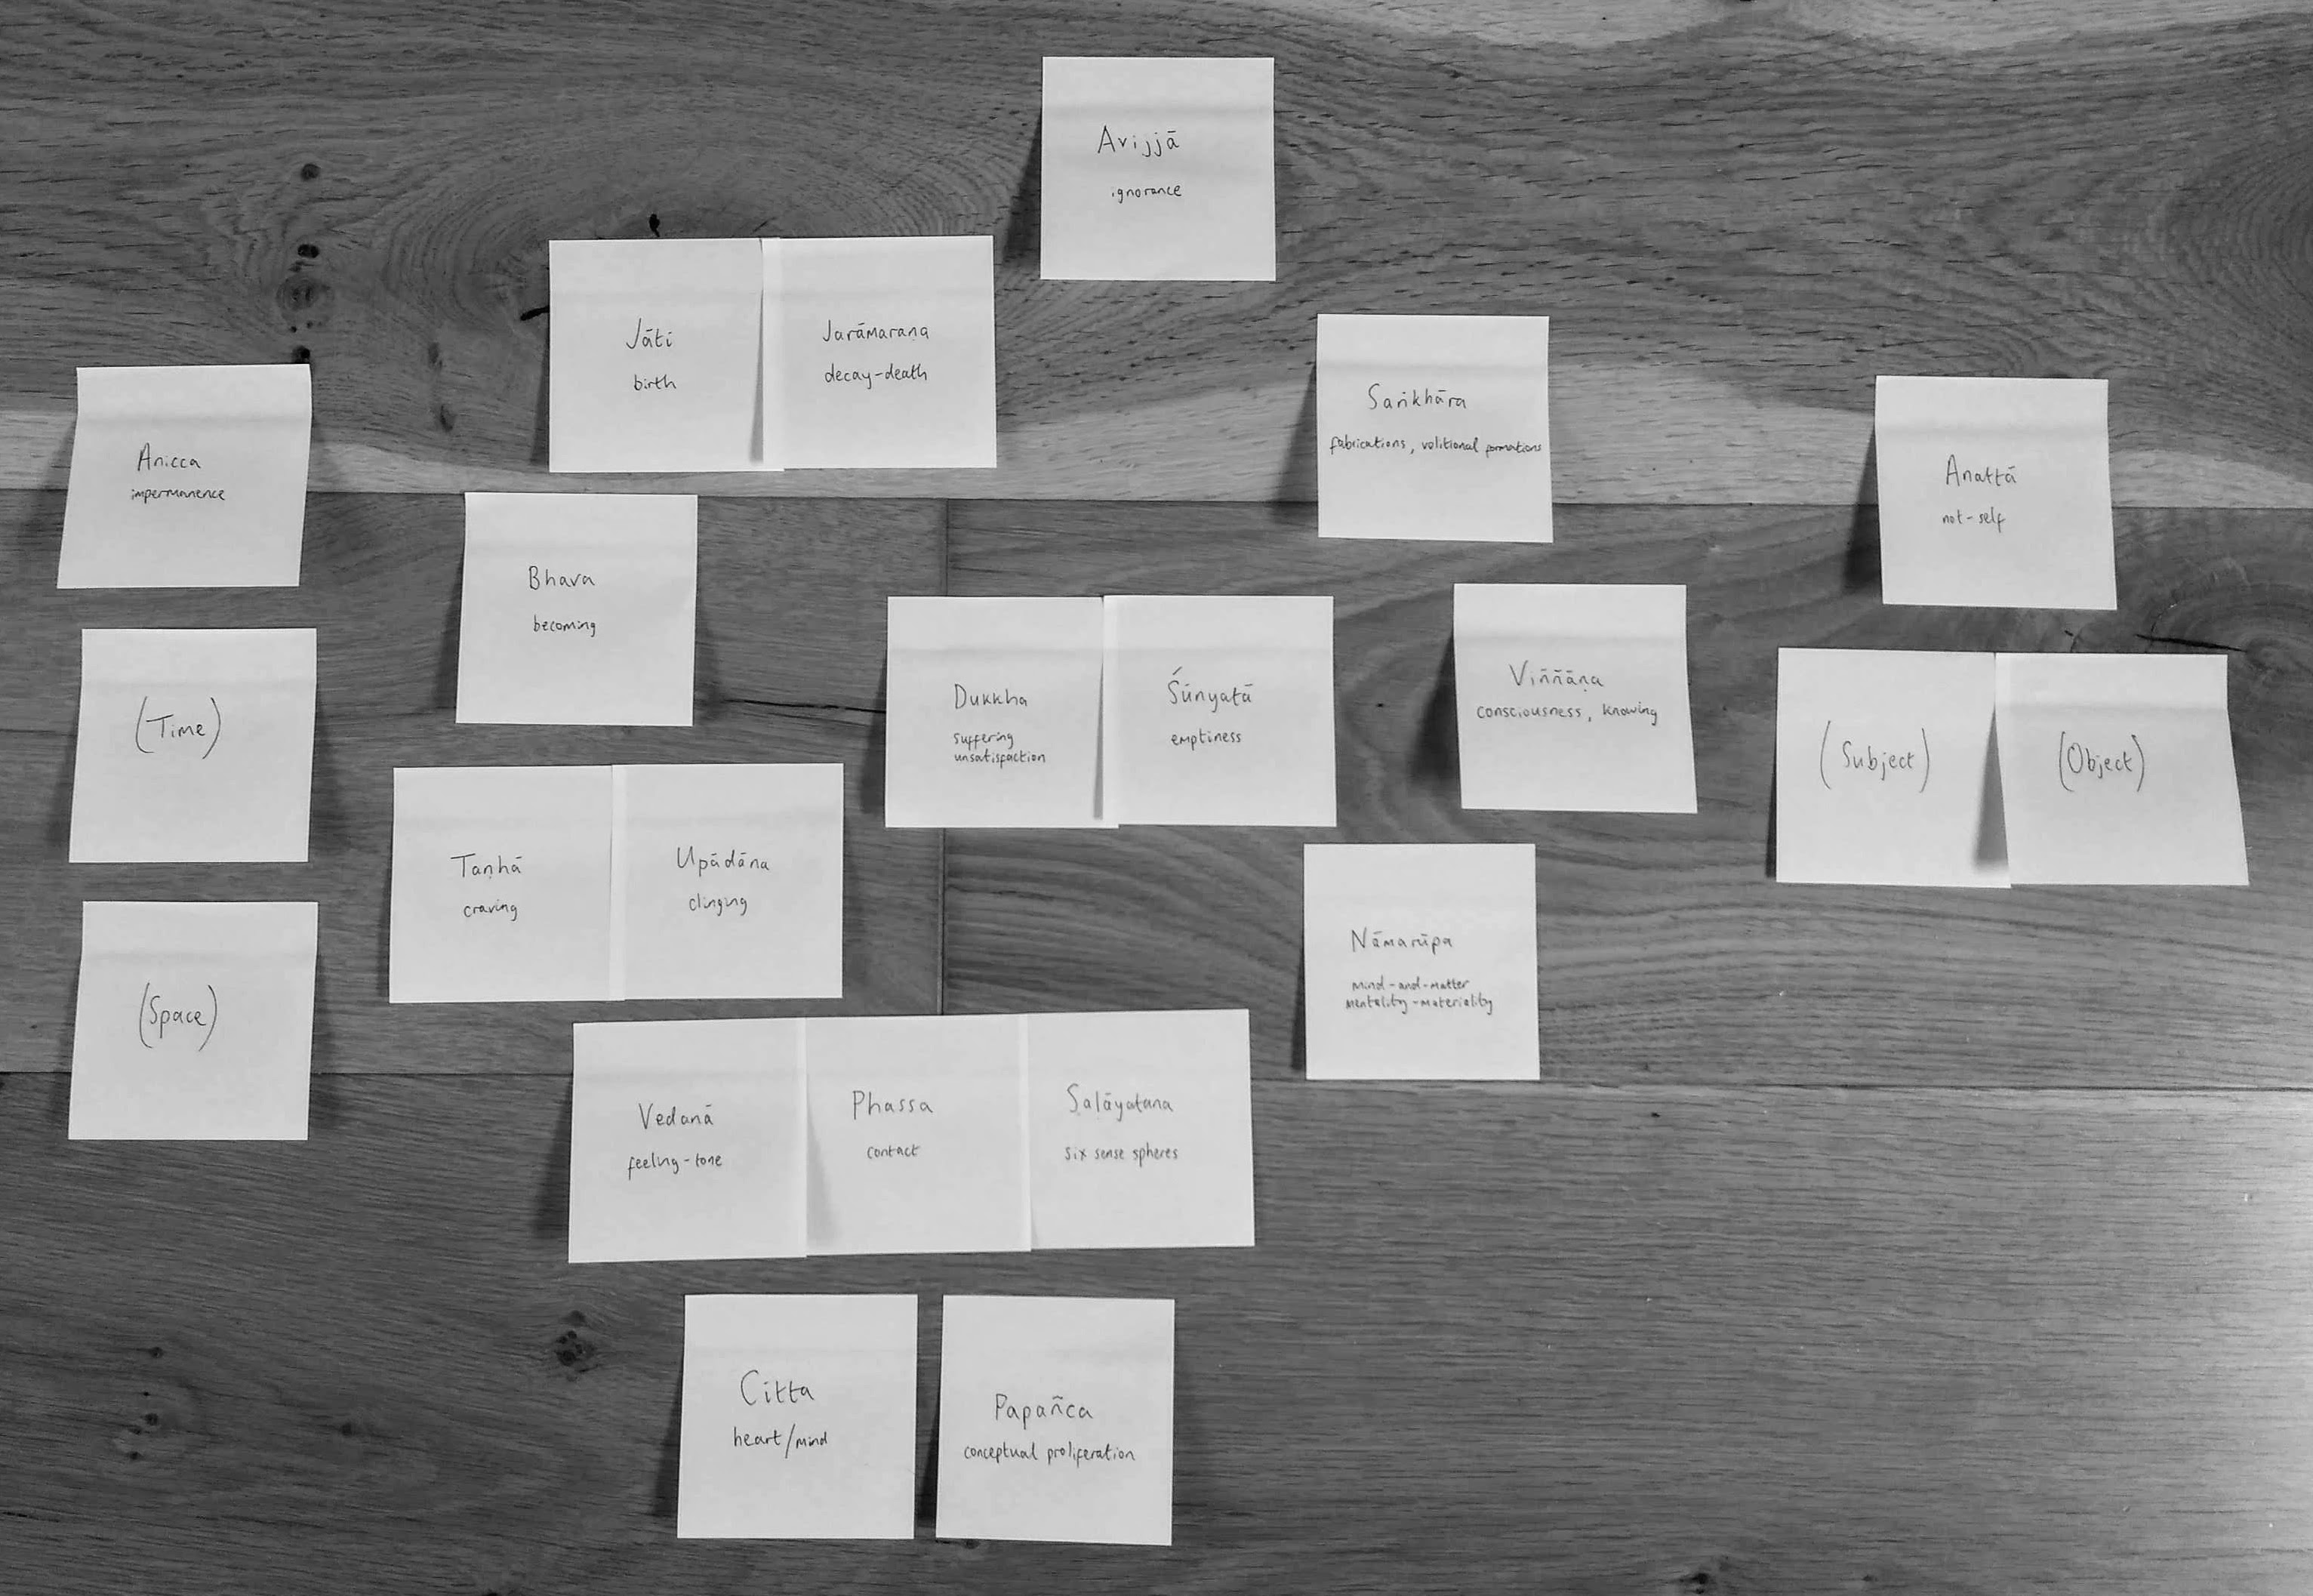 Avijjā
ignorance
Jāti
birth
Jarāmaraṇa
decay-death
Saṅkhāra
fabrications, volitional formations
Anicca
impermanence
Anattā
not-self
Bhava
becoming
(Time)
Dukkha
suffering
unsatisfaction
Śūnyatā
emptiness
Viññāṇa
consciousness, knowing
(Subject)
(Object)
Taṇhā
craving
Upādāna
clinging
Nāmarūpa
mind-and-matter
mentality-materiality
(Space)
Vedanā
feeling-tone
Phassa
contact
Saḷāyatana
six sense spheres
Citta
heart/mind
Papañca
conceptual proliferation